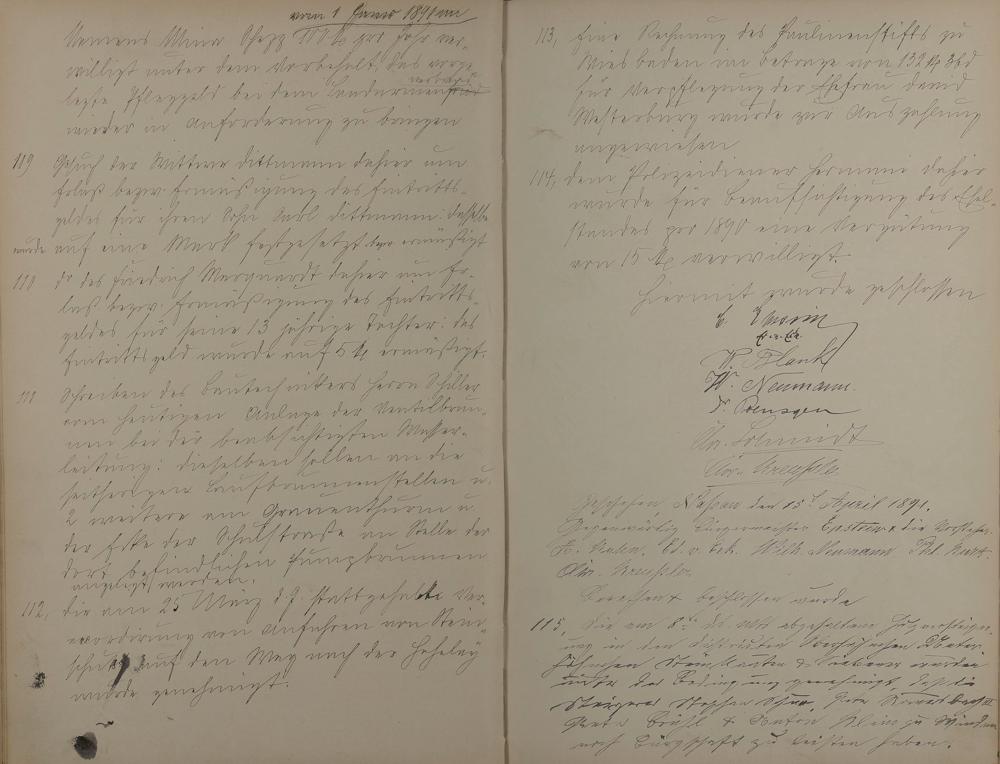 vom 1 Januar 1891 an
Namens Mina Schepp 100 M pro Jahr ver-
willigt unter dem Vorbehalt, das vorge
legte Pfleggeld bei dem Landarmenverband
wieder in Anforderung zu bringen
119 Gesuch der Wittwe Dittmann dahier um
Erlaß bezw. Ermäßigung des Eintritts-
geldes für ihren Sohn Karl Dittmann: dasselbe
wurde auf eine Mark festgesetzt bezw ermäßigt
110 do des Friedrich Marquardt dahier um Er-
laß bezw. Ermäßigung des Eintritts-
geldes für seine 13 jährige Tochter: das
Eintrittsgeld wurde auf 5 M ermäßigt.
111 Schreiben des Bautechnikers Herrn Schiller
vom heutigen Anlage der Ventilbrun-
nen bei der beabsichtigten Wasser-
leitung: dieselben sollen an die
seitherigen Laufbrunnenstellen u.
2 weitere am Grauenthurm u.
der Ecke der Schulstraße an Stelle der
dort befindlichen Pumpbrunnen
angelegt werden.
112, die am 25 März d. J. stattgehabte Ver-
accordirung von Anfuhren von Stein-
schutt auf den Weg nach der Hohelay
wurde genehmigt.
113, Eine Rechnung des Paulinenstifts zu
Wiesbaden im Betrage von 132 M 36 d
für Verpflegung der Ehefrau David
Westerburg wurde zur Auszahlung
angewiesen
114, dem Polizeidiener Hermann dahier
wurde für Beaufsichtigung des Esel-
standes pro 1890 eine Vergütung
von 15 M verwilligt.
Hiermit wurde geschlossen
W. Blank
W. Neumann.
Chr. Schmidt
Chr. Kreußler
Geschehen, Nassau den 15t April 1891.
Gegenwärtig Bürgermeister & die Vorsteher
Wilh. Neumann
Chr. Kreußler
beschlossen wurde
115, Die am 8t ds Mts abgehaltene Holzversteiger-
ung in den Distrikten
wurden
unter der Bedingung genehmigt, daß die
Steigerer Stephan
Peter & Anton Klein zu
noch Bürgschaft zu leisten haben.